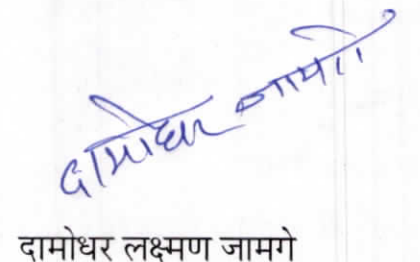 दामोधर जामगे
दामोधर लक्ष्मण जामगे